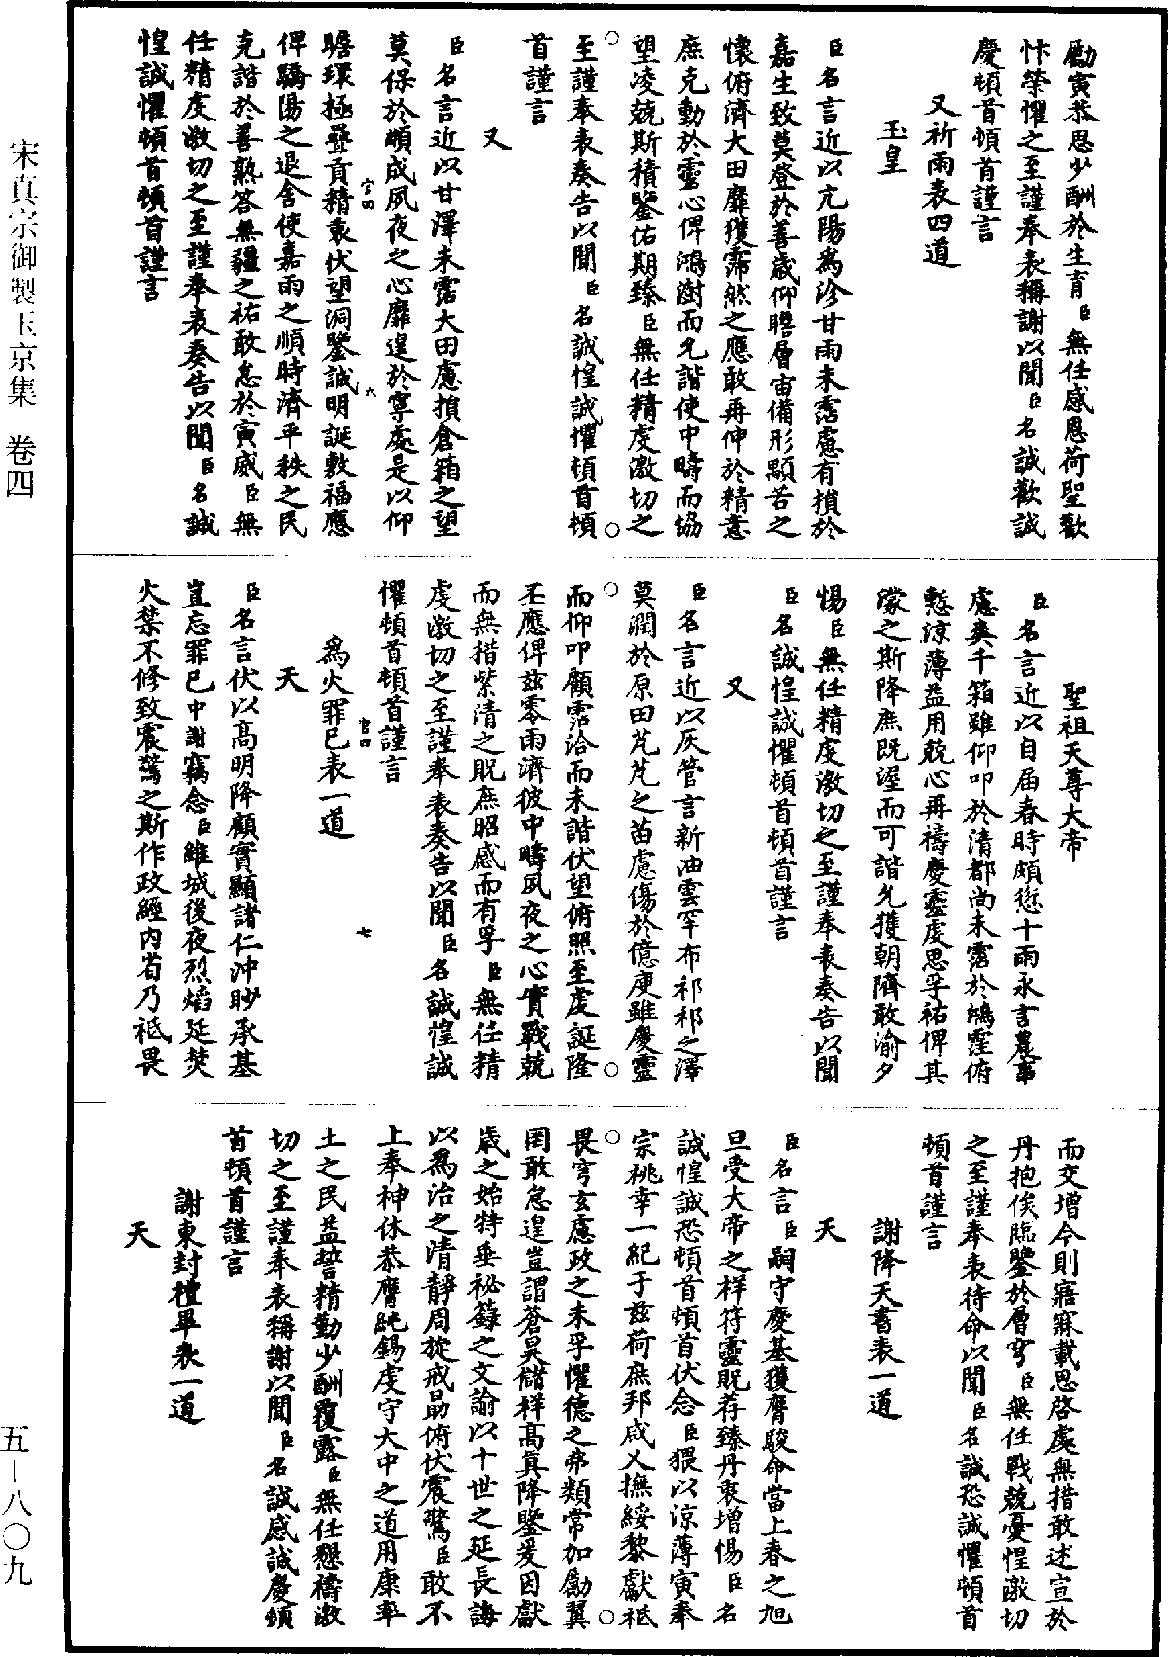 勵寅恭思少酬於生育臣無任感恩荷聖歡
忭榮懼之至謹奉表稱謝以聞臣名誠歡誠
慶頓首頓首謹言
又祈雨表四道
玉皇
臣名言近以亢陽為沴甘雨未霑慮有損於
嘉生致莫登於善歲仰瞻層宙備形顒若之
懷俯濟大田靡獲霈然之應敢再伸於精意
庶克動於靈心俾鴻澍而允諧使中疇而協
望凌兢斯積鑒佑期臻臣無任精虔激切之
至謹奉表奏告以聞臣名誠惶誠懼頓首頓
首謹言
又
臣名言近以甘澤未霑大田慮損倉箱之望
莫保於順成夙夜之心靡遑於寧處是以仰
瞻環極疊貢精衷伏望洞鑒誠明誕敷福應
俾驕陽之退舍使嘉雨之順時濟平秩之民
克諧於善熟答無疆之祐敢怠於寅威臣無
任精虔激切之至謹奉表奏告以聞臣名誠
惶誠懼頓首頓首謹言
聖祖天尊大帝
臣名言近以自屆春時頗愆十雨永言農事
慮爽千箱雖仰叩於清都尚未霑於鴻霔俯
慙涼薄益用兢心再禱慶靈虔思孚祐俾其
濛之斯降庶既渥而可諧允獲朝隮敢渝夕
惕臣無任精虔激切之至謹奉表奏告以聞
臣名誠惶誠懼頓首頓首謹言
又
臣名言近以灰管言新油雲罕布祁祁之澤
莫潤於原田芃芃之苗慮傷於億庾雖慶靈
而仰叩顧霑洽而未諧伏望俯照至虔誕隆
丕應俾茲零雨濟彼中疇夙夜之心實戰兢
而無措紫清之貺庶昭感而有孚臣無任精
虔激切之至謹奉表奏告以聞臣名誠惶誠
懼頓首頓首謹言
為火罪已表一道
天
臣名言伏以高明降顧實顯諸仁沖眇承基
豈忘罪已中謝竊念臣雖城後夜烈焰延焚
火禁不修致震驚之斯作政經内省乃祗畏
而交增今則寤寐載思啓處無措敢述宣於
丹抱俟臨鑒於層穹臣無任戰兢憂惶激切
之至謹奉表待命以聞臣名誠恐誠懼頓首
頓首謹言
謝降天書表一道
天
臣名言臣嗣守慶基獲膺駿命當上春之旭
旦受大帝之祥符靈貺荐臻丹衷增惕臣名
誠惶誠恐頓首頓首伏念臣猥以涼薄寅奉
宗祧幸一紀于茲荷庶邦咸乂撫綏黎獻祗
畏穹玄慮政之未孚懼德之弗類常加勵翼
罔敢怠遑豈謂蒼昊儲祥高真降鑒爰因獻
歲之始特垂祕籙之文諭以十世之延長誨
以為治之清靜周旋戒勗俯伏震驚臣敢不
上奉神休恭膺純錫虔守大中之道用康率
土之民益誓精勤少酬覆露臣無任懇禱激
切之至謹奉表稱謝以聞臣名誠感誠慶頓
首頓首謹言
謝東封禮畢表一道
天
宋真宗御製玉京集 卷四
五—八〇九